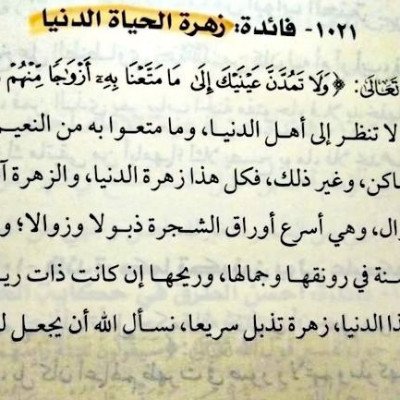 ١٠٢١- فائدة: زهرة الحياة الدنيا
تَعَالَى: ﴿وَلَا تَمُدَّنَّ عَيْنَيْكَ إِلَىٰ مَا مَتَّعْنَا بِهِۦٓ أَزْوَٰجًا مِّنْهُمْ
لا تنظر إلى أهل الدنيا، وما متعوا به من النعيم
اكن، وغير ذلك، فكل هذا زهرة الدنيا، والزهرة آ
ال، وهي أسرع أوراق الشجرة ذبولا وزوالا؛ و
سنة في رونقها وجمالها، وريحها إن كانت ذات ري
ذا الدنيا، زهرة تذبل سريعا، نسأل الله أن يجعل ل